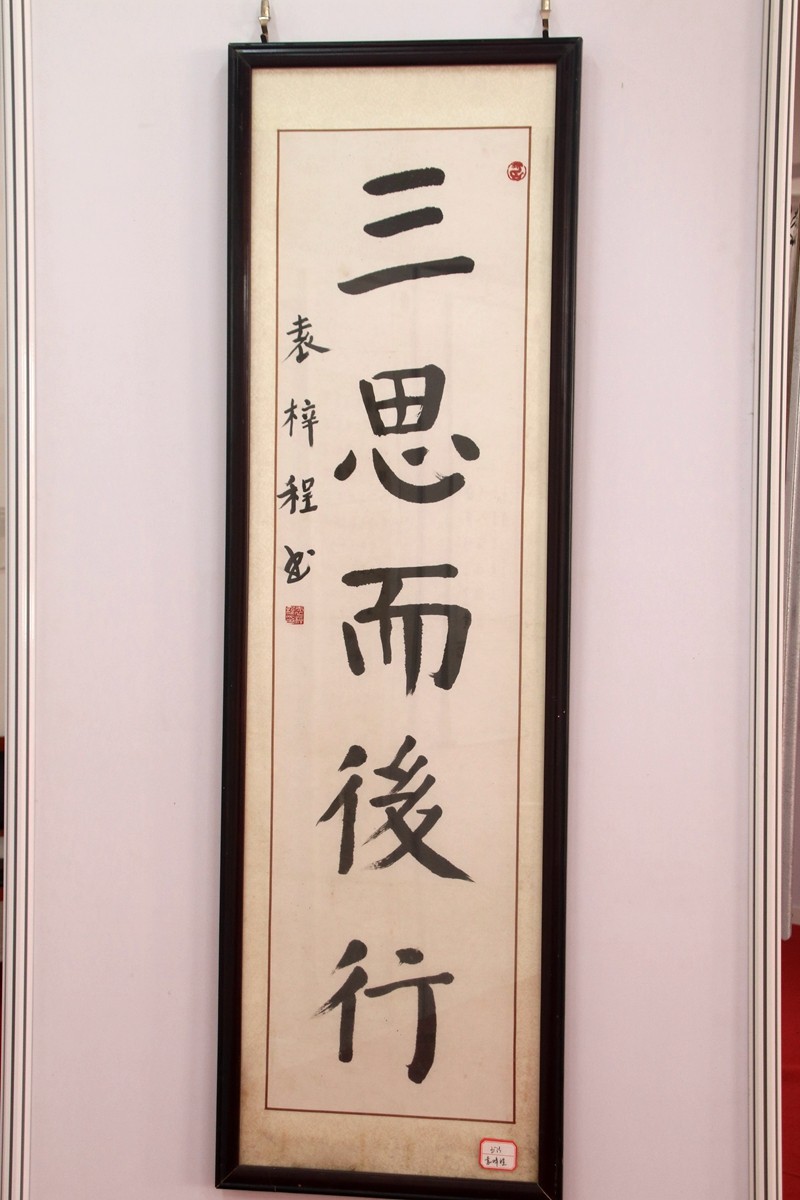 三思而後行
袁梓程书